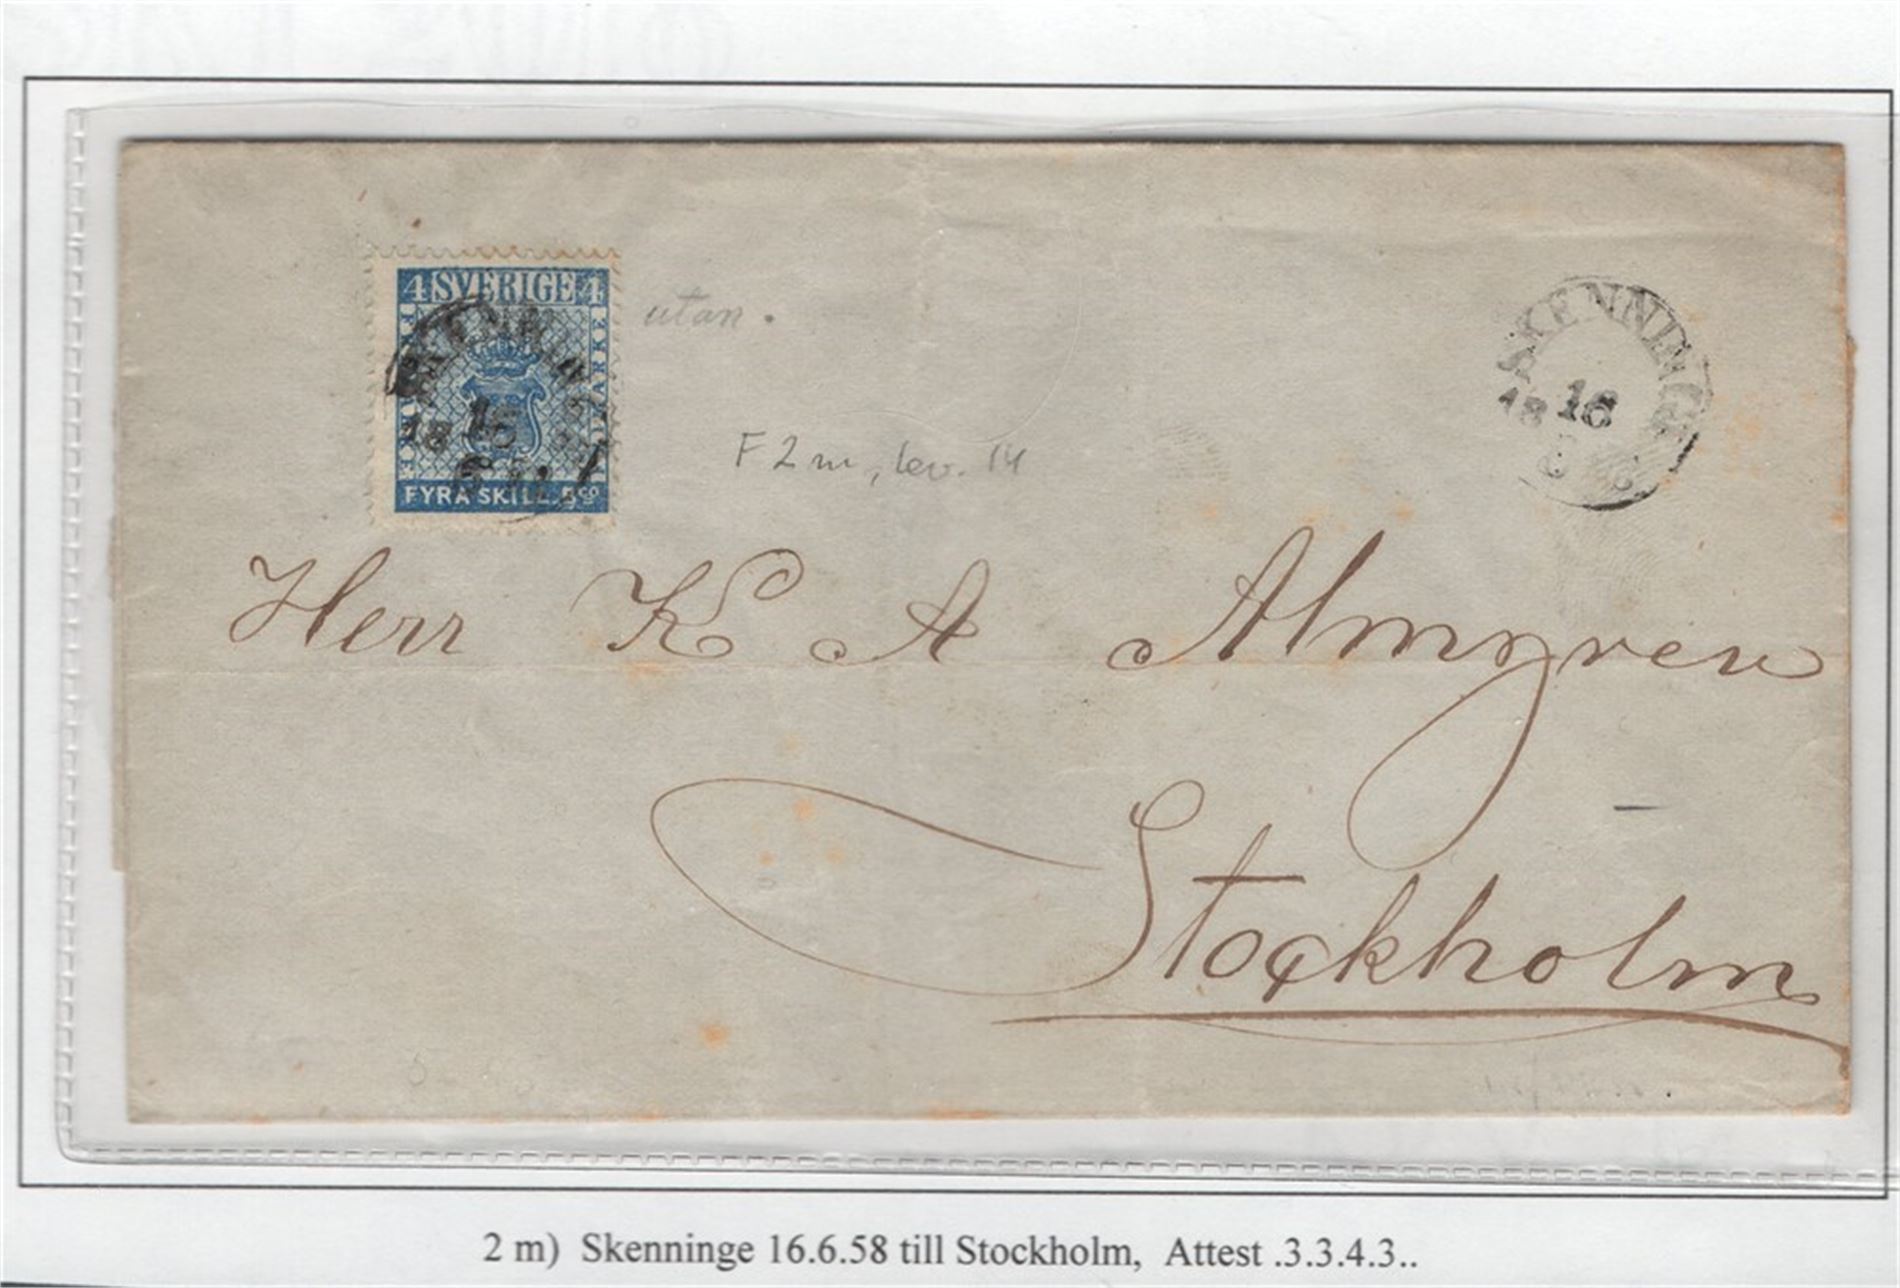 4 SVERIGE 4
FYRA SKILL. Bco
utan.
F 2 m, lev. 14
SKENNINGE
16
18
Herr K A Almgren
Stockholm
2 m) Skenninge 16.6.58 till Stockholm, Attest .3.3.4.3..